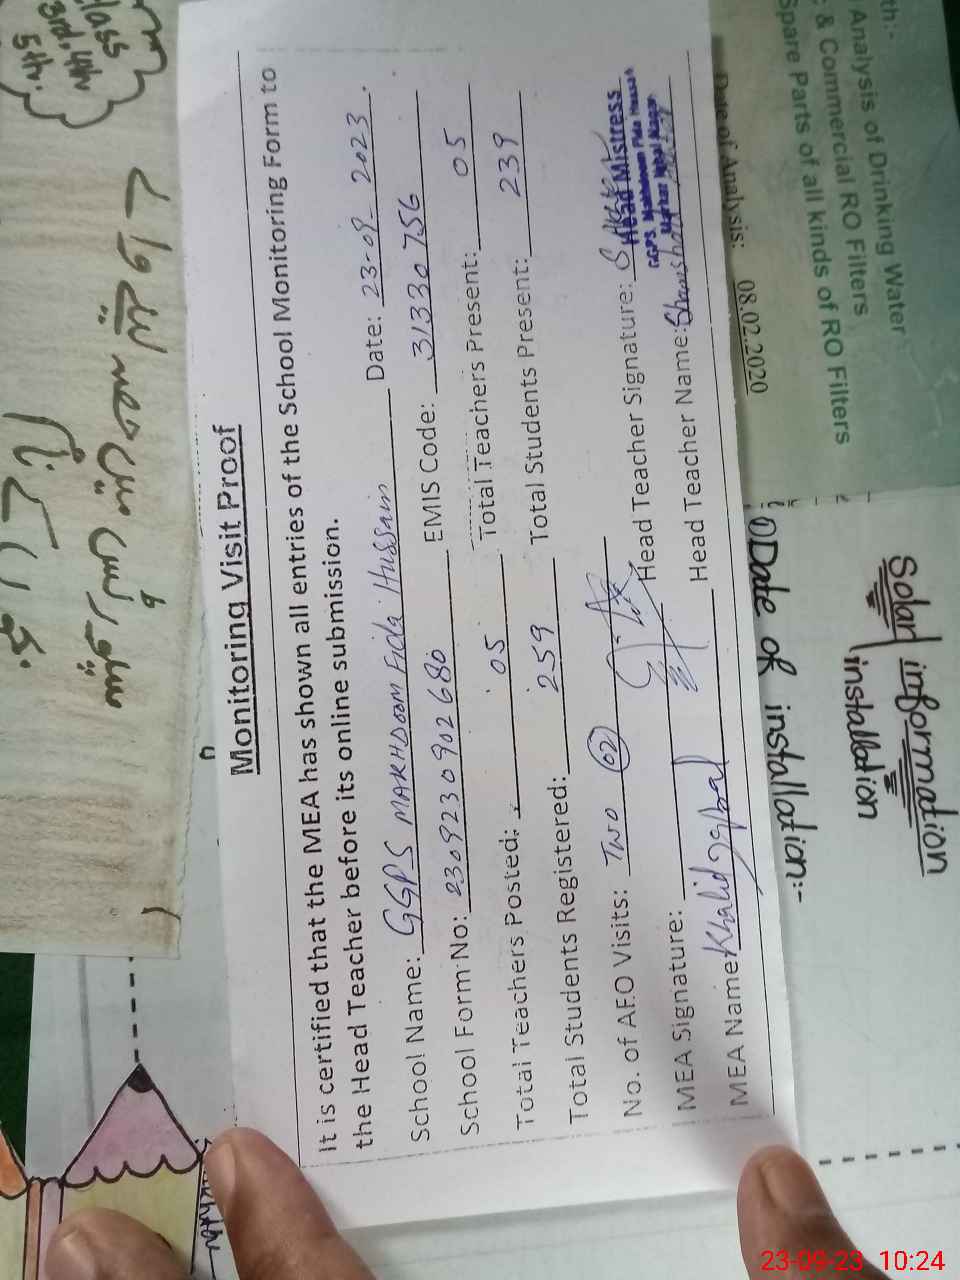 Monitoring Visit Proof
It is certified that the MEA has shown all entries of the School Monitoring Form to
the Head Teacher before its online submission.
School Name: GGPS MAKHDOOM Fida Hussain Date: 23-09-2023.
School Form No: 230923090 2680 EMIS Code: 31330756
Total Teachers Posted: 05 Total Teachers Present: 05
Total Students Registered: 259 Total Students Present: 239
No. of AEO Visits: Two 02
MEA Signature: Head Teacher Signature:
Head Mistress
GGPS Makhdoom Fida Hussain
MEA Name: Khalid Iqbal Head Teacher Name:
Class
3rd, 4th
5th.
th:-
Analysis of Drinking Water
& Commercial RO Filters
Spare Parts of all kinds of RO Filters
Date of Analysis: 08.02.2020
Solar information
installation
① Date of installation:-
23-09-23 10:24